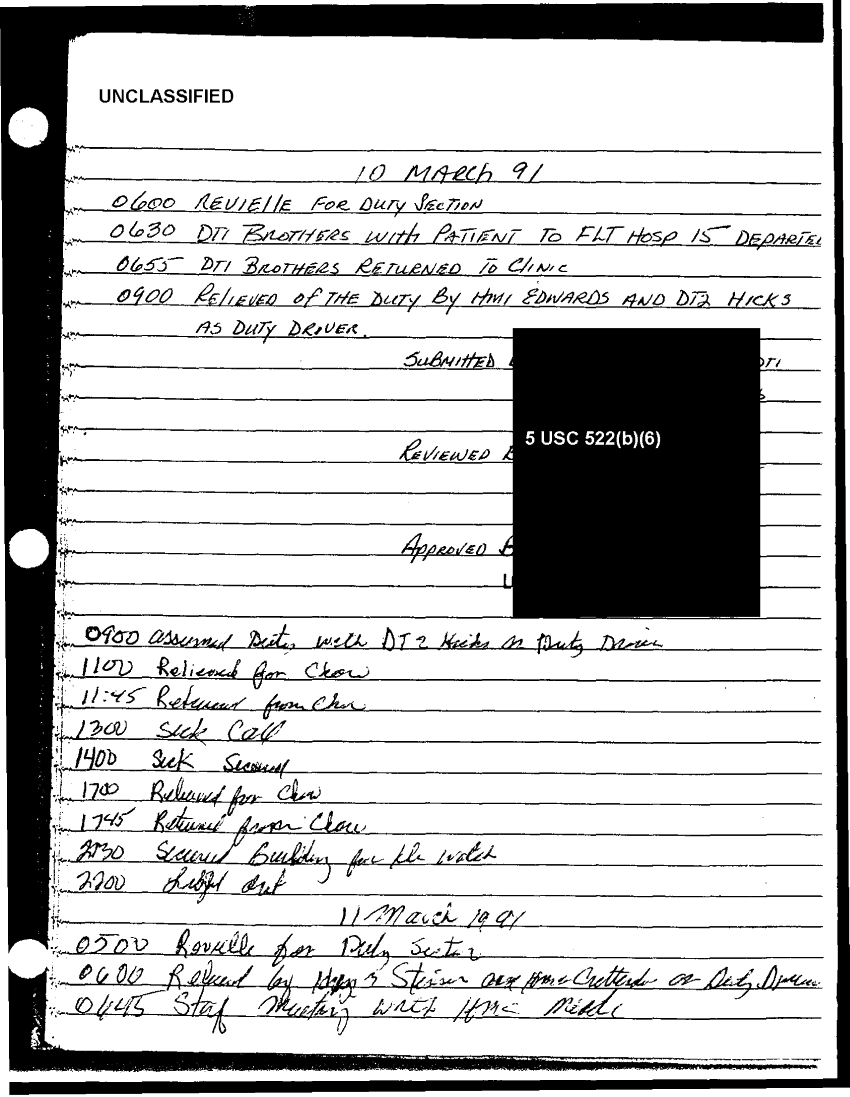 UNCLASSIFIED
10 MARCH 91
0600 REVIELLE FOR DUTY SECTION
0630 DT1 BROTHERS WITH PATIENT TO FLT HOSP 15 DEPARTED
0655 DT1 BROTHERS RETURNED TO CLINIC
0900 RELIEVED OF THE DUTY BY HM1 EDWARDS AND DT2 HICKS
AS DUTY DRIVER.
SUBMITTED
DT1
5 USC 522(b)(6)
REVIEWED B
APPROVED B
L
0900 assumed Duty with DT2 Hicks as Duty Driver
1100 Relieved for Chow
11:45 Returned from Chow
1300 Sick Call
1400 Sick Secured
1700 Relieved for Chow
1745 Returned from Chow
2130 Secured Building for the watch
2200 Light out
11 March 1991
0500 Reville for Duty Section
0600 Relieved by Stesser Duty Driver
0645 Staf Meeting with HMC